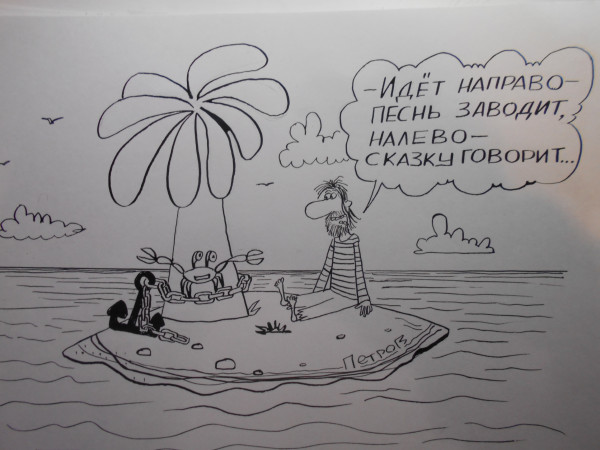 -ИДЁТ НАПРАВО-
ПЕСНЬ ЗАВОДИТ,
НАЛЕВО-
СКАЗКУ ГОВОРИТ...
ПЕТРОВ